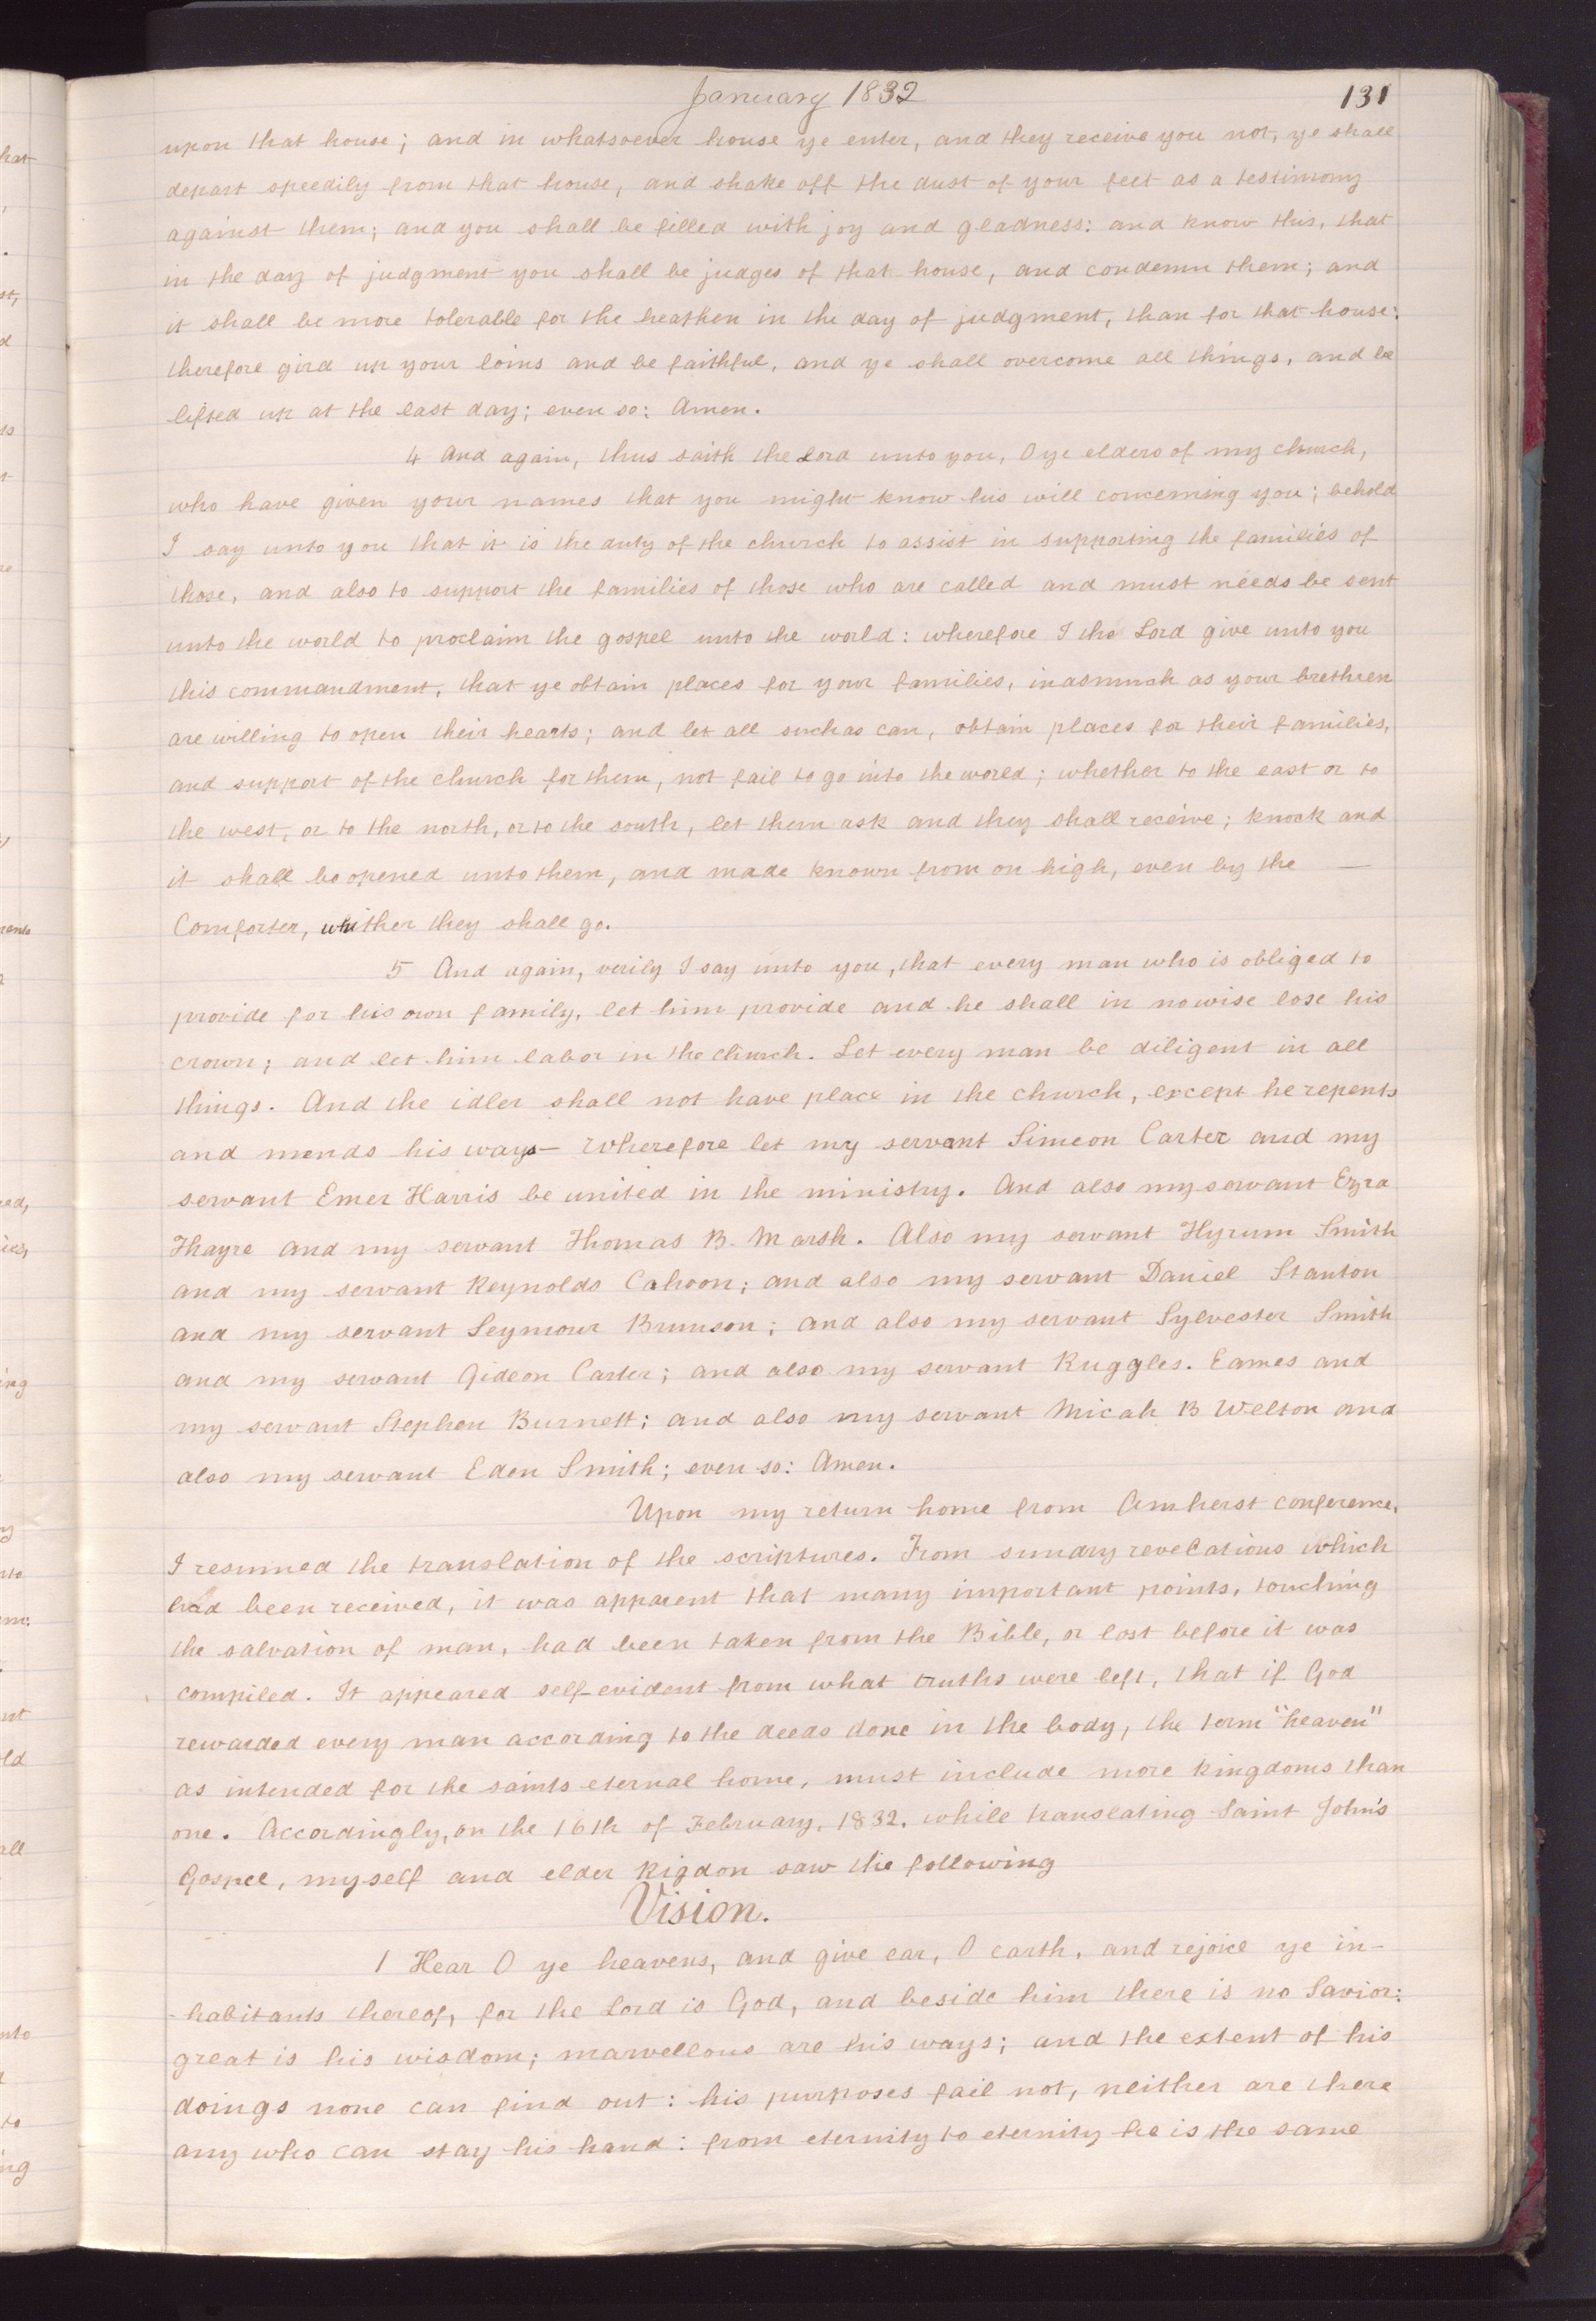 January 1832 131
upon that house; and in whatsoever house ye enter, and they receive you not, ye shall
depart speedily from that house, and shake off the dust of your feet as a testimony
against them; and you shall be filled with joy and gladness: and know this, that
in the day of judgment you shall be judges of that house, and condemn them; and
it shall be more tolerable for the heathen in the day of judgment, than for that house:
therefore gird up your loins and be faithful, and ye shall overcome all things, and be
lifted up at the last day; even so: Amen.
4 And again, thus saith the Lord unto you, O ye elders of my church,
who have given your names that you might know his will concerning you; behold
I say unto you that it is the duty of the church to assist in supporting the families of
those, and also to support the families of those who are called and must needs be sent
unto the world to proclaim the gospel unto the world: wherefore I the Lord give unto you
this commandment, that ye obtain places for your families, inasmuch as your brethren
are willing to open their hearts; and let all such as can, obtain places for their families,
and support of the church for them, not fail to go into the world; whether to the east or to
the west, or to the north, or to the south, let them ask and they shall receive; knock and
it shall be opened unto them, and made known from on high, even by the —
Comforter, whither they shall go.
5 And again, verily I say unto you, that every man who is obliged to
provide for his own family, let him provide and he shall in nowise lose his
crown; and let him labor in the church. Let every man be diligent in all
things. And the idler shall not have place in the church, except he repents
and mends his ways— Wherefore let my servant Simeon Carter and my
servant Emer Harris be united in the ministry. And also my servant Ezra
Thayre and my servant Thomas B. Marsh. Also my servant Hyrum Smith
and my servant Reynolds Cahoon; and also my servant Daniel Stanton
and my servant Seymour Brunson; and also my servant Sylvester Smith
and my servant Gideon Carter; and also my servant Ruggles. Eames and
my servant Stephen Burnett; and also my servant Micah B Welton and
also my servant Eden Smith; even so: Amen.
Upon my return home from Amherst conference,
I resumed the translation of the scriptures. From sundry revelations which
had been received, it was apparent that many important points, touching
the salvation of man, had been taken from the Bible, or lost before it was
compiled. It appeared self-evident from what truths were left, that if God
rewarded every man according to the deeds done in the body, the term "heaven"
as intended for the saints eternal home, must include more kingdoms than
one. Accordingly, on the 16th of February, 1832, while translating Saint John's
Gospel, myself and elder Rigdon saw the following
Vision.
1 Hear O ye heavens, and give ear, O earth, and rejoice ye in-
-habitants thereof, for the Lord is God, and beside him there is no Savior:
great is his wisdom; marvellous are his ways; and the extent of his
doings none can find out: his purposes fail not, neither are there
any who can stay his hand: from eternity to eternity he is the same